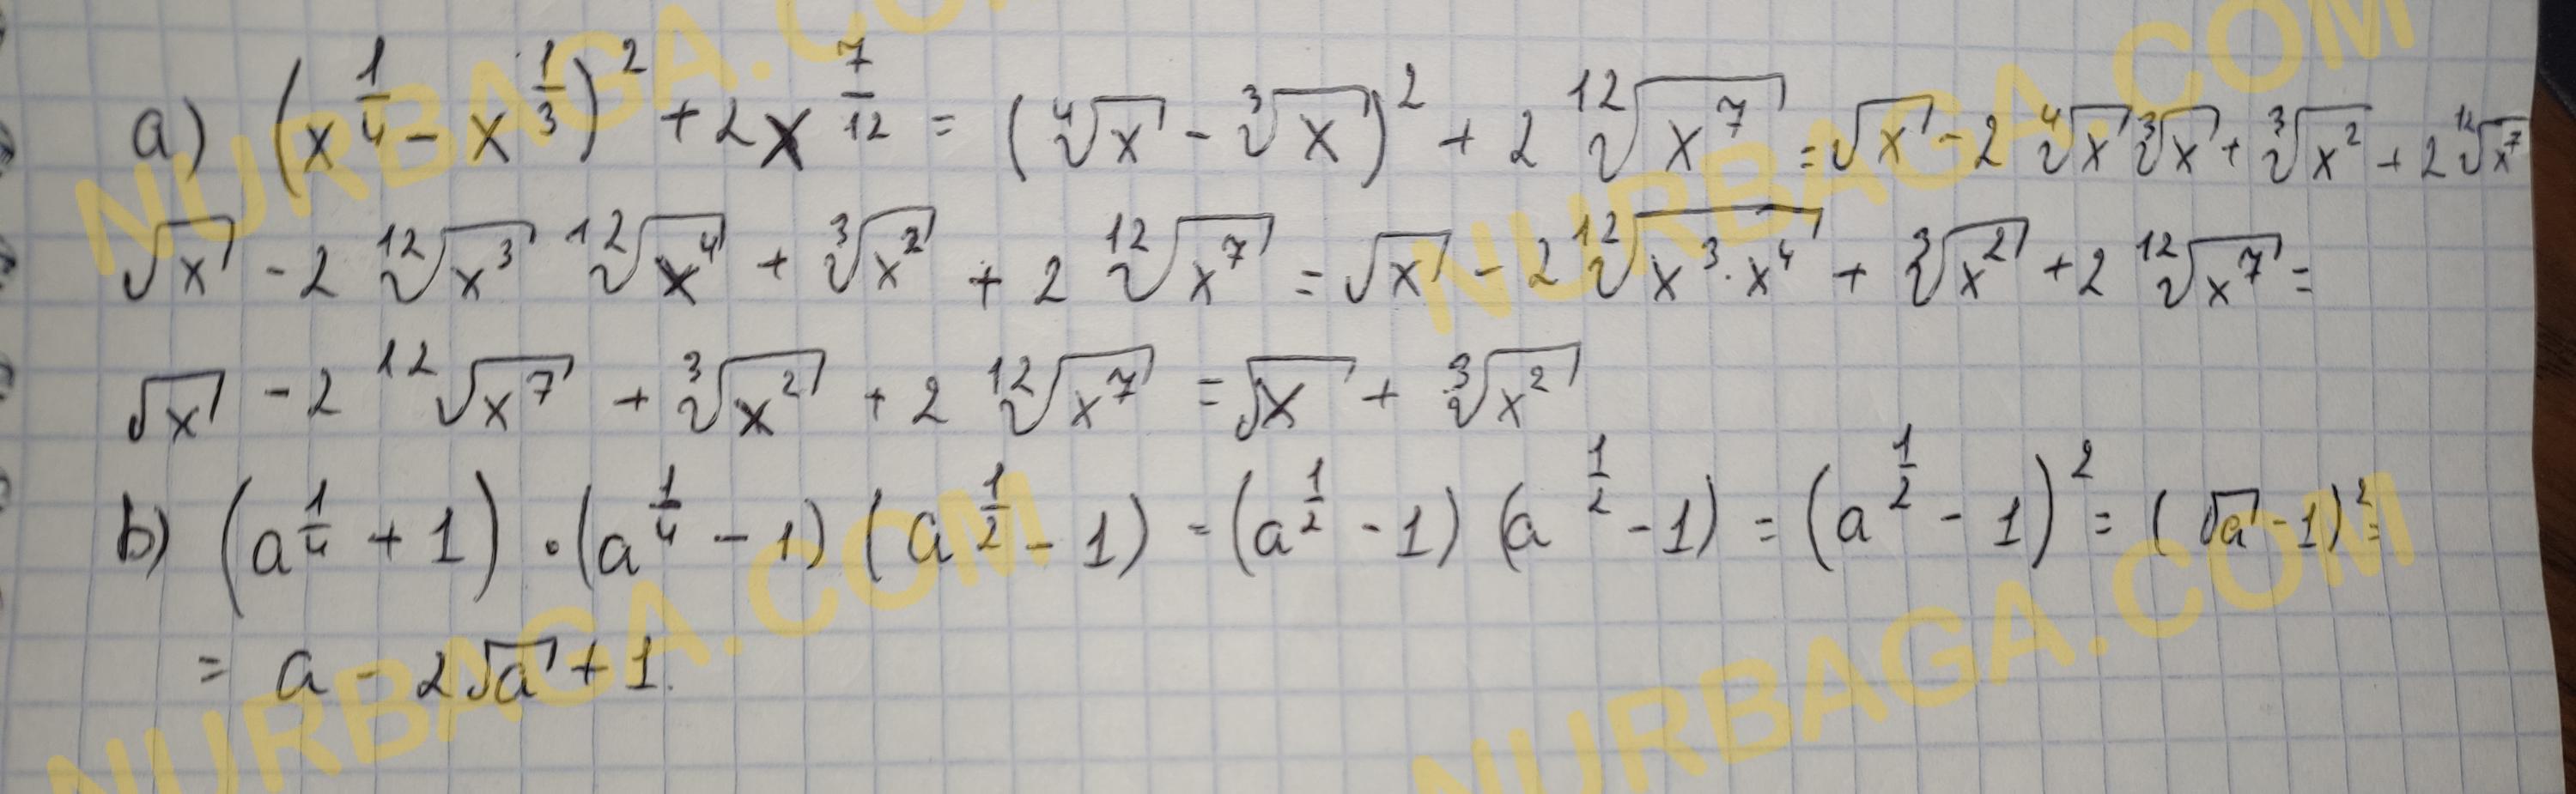 a) (x^{1/4} - x^{1/3})^2 + 2x^{7/12} = (∜x - ∛x)^2 + 2 ¹²√(x^7) = √x - 2 ∜x ∛x + ∛(x^2) + 2 ¹²√(x^7)
√x - 2 ¹²√(x^3) ¹²√(x^4) + ∛(x^2) + 2 ¹²√(x^7) = √x - 2 ¹²√(x^3 · x^4) + ∛(x^2) + 2 ¹²√(x^7) =
√x - 2 ¹²√(x^7) + ∛(x^2) + 2 ¹²√(x^7) = √x + ∛(x^2)
b) (a^{1/4} + 1) · (a^{1/4} - 1) (a^{1/2} - 1) = (a^{1/2} - 1) (a^{1/2} - 1) = (a^{1/2} - 1)^2 = (√a - 1)^2 =
= a - 2√a + 1.
NURBAGA.COM
NURBAGA.COM
NURBAGA.COM
NURBAGA.COM